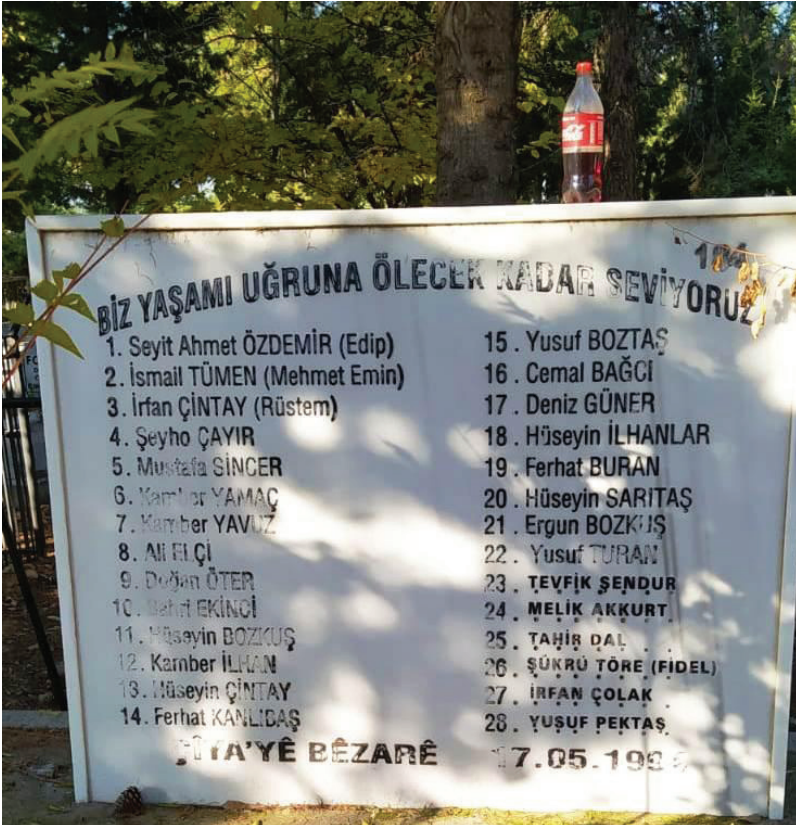 BİZ YAŞAMI UĞRUNA ÖLECEK KADAR SEVİYORUZ
1. Seyit Ahmet ÖZDEMİR (Edip)
2. İsmail TÜMEN (Mehmet Emin)
3. İrfan ÇİNTAY (Rüstem)
4. Şeyho ÇAYIR
5. Mustafa SİNCER
6. Kamber YAMAÇ
7. Kamber YAVUZ
8. Ali ELÇİ
9. Doğan ÖTER
10. EKİNCİ
11. Hüseyin BOZKUŞ
12. Kamber İLHAN
13. Hüseyin ÇİNTAY
14. Ferhat KANLIBAŞ
15. Yusuf BOZTAŞ
16. Cemal BAĞCI
17. Deniz GÜNER
18. Hüseyin İLHANLAR
19. Ferhat BURAN
20. Hüseyin SARITAŞ
21. Ergun BOZKUŞ
22. Yusuf TURAN
23. TEVFİK ŞENDUR
24. MELİK AKKURT
25. TAHİR DAL
26. ŞÜKRÜ TÖRE (FİDEL)
27. İRFAN ÇOLAK
28. YUSUF PEKTAŞ
ÇİYA'YÊ BÊZARÊ